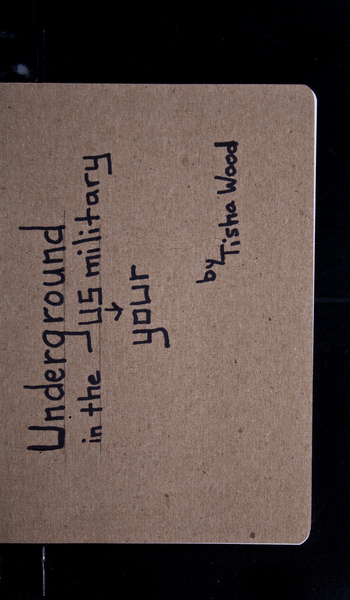 Underground
in the US military
→
your
by
Tisha Wood